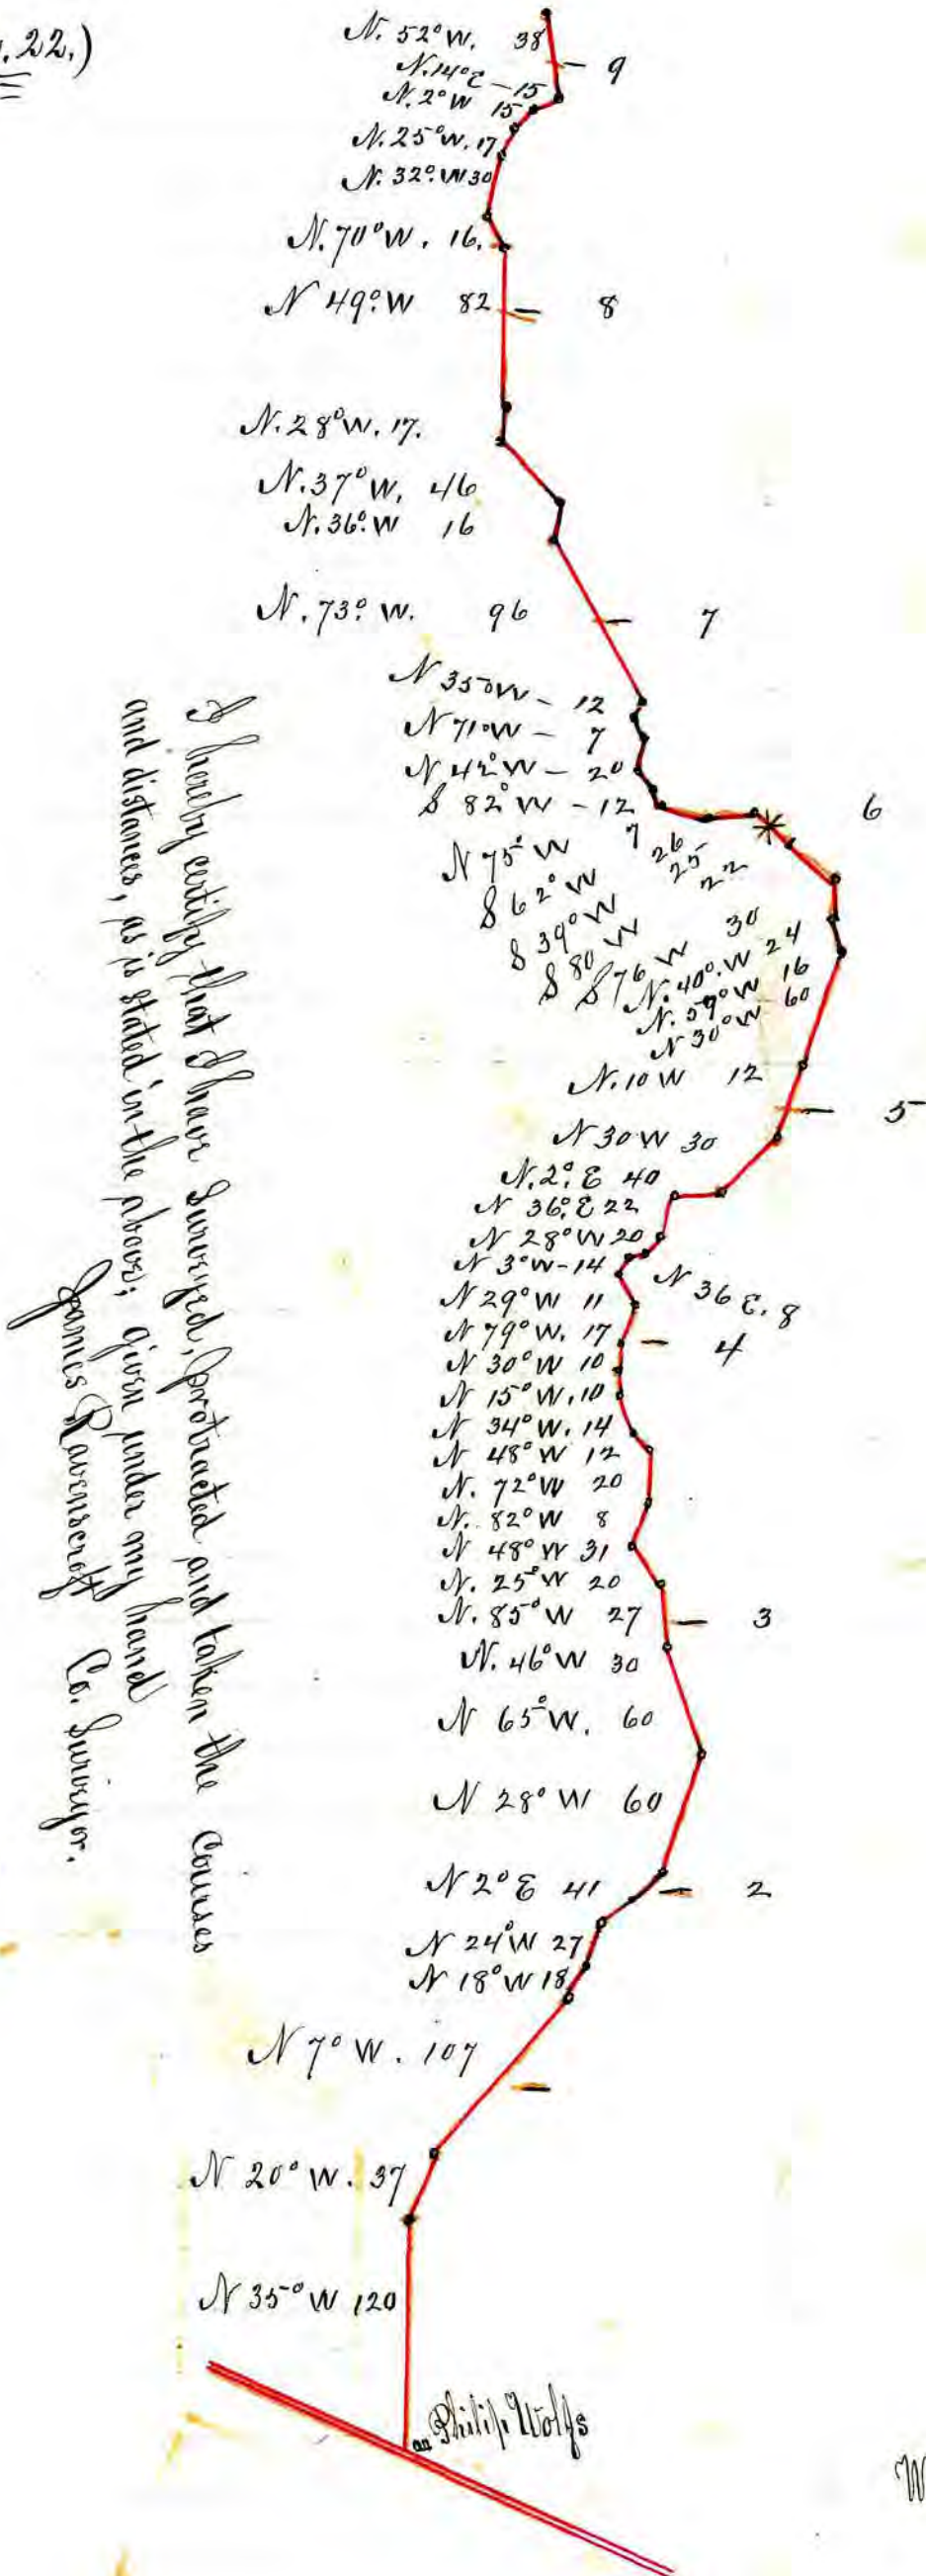 .22.)
N. 52° W. 38
9
N. 14° E - 15
N. 2° W 15
N. 25° W. 17
N. 32° W 30
N. 70° W. 16.
N 49° W 82
8
N. 28° W. 17.
N. 37° W, 46
N. 36° W 16
N. 73° W. 96
7
N 35° W - 12
N 71° W - 7
N 42° W - 20
S 82° W - 12
6
N 75° W 7
S 62° W 26
S 39° W 25
S 80 W 22
S 76 W 30
N. 40° W 24
N. 59° W 16
N 30° W 60
N. 10 W 12
5
N 30 W 30
N. 2° E 40
N 36° E 22
N 28° W 20
N 3° W - 14
N 36 E. 8
N 29° W 11
N 79° W. 17
4
N 30° W 10
N 15° W. 10
N 34° W. 14
N 48° W 12
N. 72° W 20
N. 82° W 8
N 48° W 31
N. 25° W 20
N. 85° W 27
3
N. 46° W 30
N 65° W. 60
N 28° W 60
N 2° E 41
2
N 24° W 27
N 18° W 18
N 7° W. 107
N 20° W. 37
N 35° W 120
Philip Wolfs
W
I hereby certify that I have Surveyed, protracted and taken the Courses
and distances, as is stated in the above; given under my hand
James Ravenscroft Co. Surveyor.